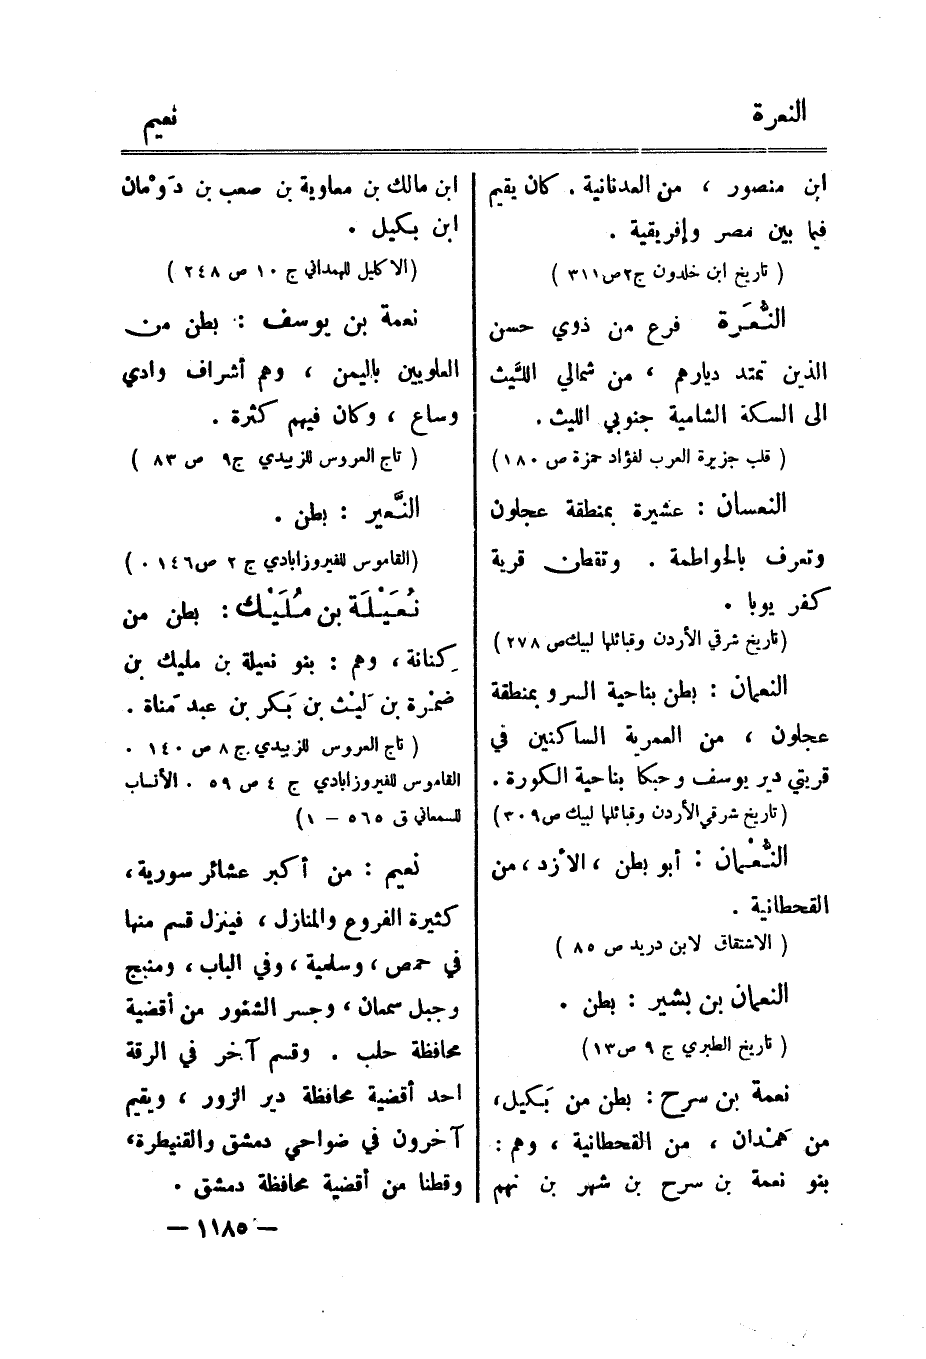 النعرة
نعيم
ابن منصور ، من العدنانية . كان يقيم
فيما بين مصر وإفريقية .
( تاريخ ابن خلدون ج٢ص٣١١ )
النُّعَرة فرع من ذوي حسن
الذين تمتد ديارهم ، من شمالي الليث
الى السكة الشامية جنوبي الليث .
( قلب جزيرة العرب لفؤاد حمزة ص ١٨٠)
النعسان : عشيرة بمنطقة عجلون
وتعرف بالحواطمة . وتقطن قرية
كفر يوبا .
(تاريخ شرقي الأردن وقبائلها لبيك ص ٢٧٨)
النعمان : بطن بناحية السرو بمنطقة
عجلون ، من العمرية الساكنين في
قريتي دير يوسف وحبكا بناحية الكورة .
(تاريخ شرقي الأردن وقبائلها لبيك ص٣٠٩)
النُّعْمان : أبو بطن ، الأزد ، من
القحطانية .
( الاشتقاق لابن دريد ص ٨٥ )
النعمان بن بشير : بطن .
( تاريخ الطبري ج ٩ ص١٣)
نعمة بن سرح : بطن من بَكيل،
من هَمْدان ، من القحطانية ، وهم :
بنو نعمة بن سرح بن شهر بن نهم
ابن مالك بن معاوية بن صعب بن دَوْمان
ابن بكيل .
(الاكليل للهمداني ج ١٠ ص ٢٤٨ )
نعمة بن يوسف : بطن من
العلويين باليمن ، وهم أشراف وادي
وساع ، وكان فيهم كثرة .
( تاج العروس للزبيدي ج٩ ص ٨٣ )
النَّعير : بطن .
(القاموس للفيروزابادي ج ٢ ص١٤٦ . )
نُعَيْلَة بن مُلَيْك : بطن من
كنانة ، وهم : بنو نعيلة بن مليك بن
ضمْرة بن لَيْث بن بَكر بن عبد مَناة .
( تاج العروس للزبيدي ج ٨ ص ١٤٠ .
القاموس للفيروزابادي ج ٤ ص ٥٩ . الأنساب
للسمعاني ق ٥٦٥ – ١)
نعيم : من أكبر عشائر سورية ،
كثيرة الفروع والمنازل ، فينزل قسم منها
في حمص ، وسلمية ، وفي الباب ، ومنبج
وجبل سمعان ، وجسر الشغور من أقضية
محافظة حلب . وقسم آخر في الرقة
احد أقضية محافظة دير الزور ، ويقيم
آخرون في ضواحي دمشق والقنيطرة،
وقطنا من أقضية محافظة دمشق .
– ١١٨٥ –